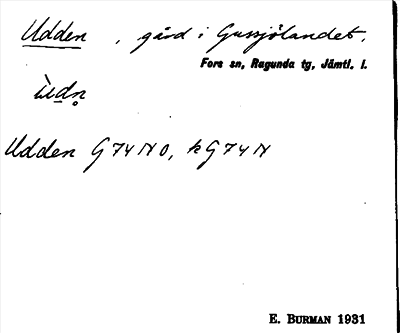 Udden, gård i Gussjölandet.
Fors sn, Ragunda tg, Jämtl. l.
ùdn̥
Udden G74NO, kG74N
E. BURMAN 1931